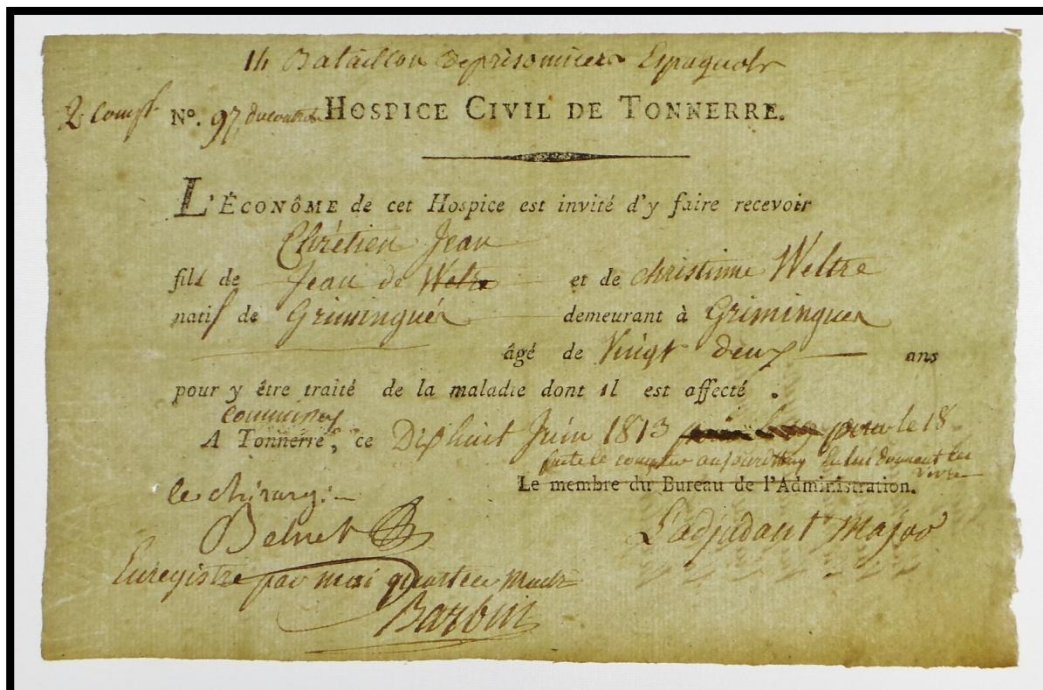 14 Bataillon de prisonniers Espagnols
2 Comp. N°. 97 HOSPICE CIVIL DE TONNERRE.
L'ÉCONÔME de cet Hospice est invité d'y faire recevoir
Chrétien Jean
fils de Jean de Weltre et de christinne Weltre
natif de Griminguer demeurant à Griminguer
âgé de Vingt deux ans
pour y être traité de la maladie dont il est affecté.
A Tonnerre, ce Dixhuit Juin 1813 pour le 18
aujourdhuy
Le membre du Bureau de l'Administration.
le chirurg:
L'adjudant Major
Belnet
Enregistré par moi quartier Mait
Barbin